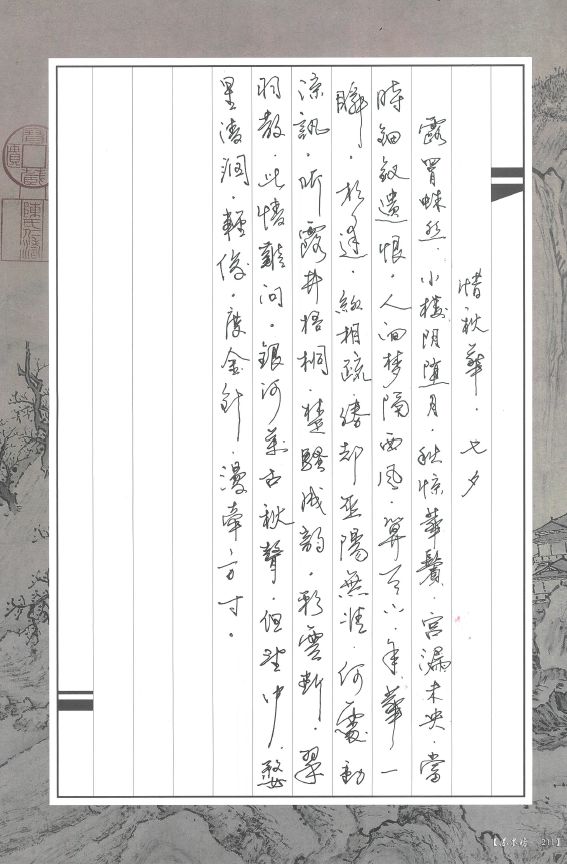 惜秋華．七夕
露罥蛛丝．小樓阴堕月．秋惊華鬢．宮漏未央．當
時鈿釵遺恨．人间梦隔西風．算天上．年華一
瞬．相逢．縱相疏．勝却巫陽無准．何處動
涼訊．听露井梧桐．楚騷成韵．彩雲断．翠
羽散．此情難问．銀河萬古秋聲．但望中．婺
星清润．輕俊．度金針．漫牽方寸．